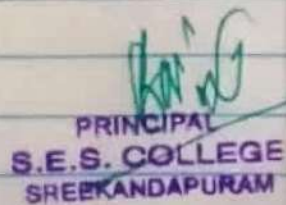 PRINCIPAL
S.E.S. COLLEGE
SREEKANDAPURAM